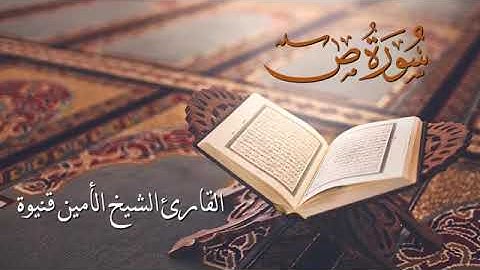 سُورَةُ ص
القارئ الشيخ الأمين قنيوة